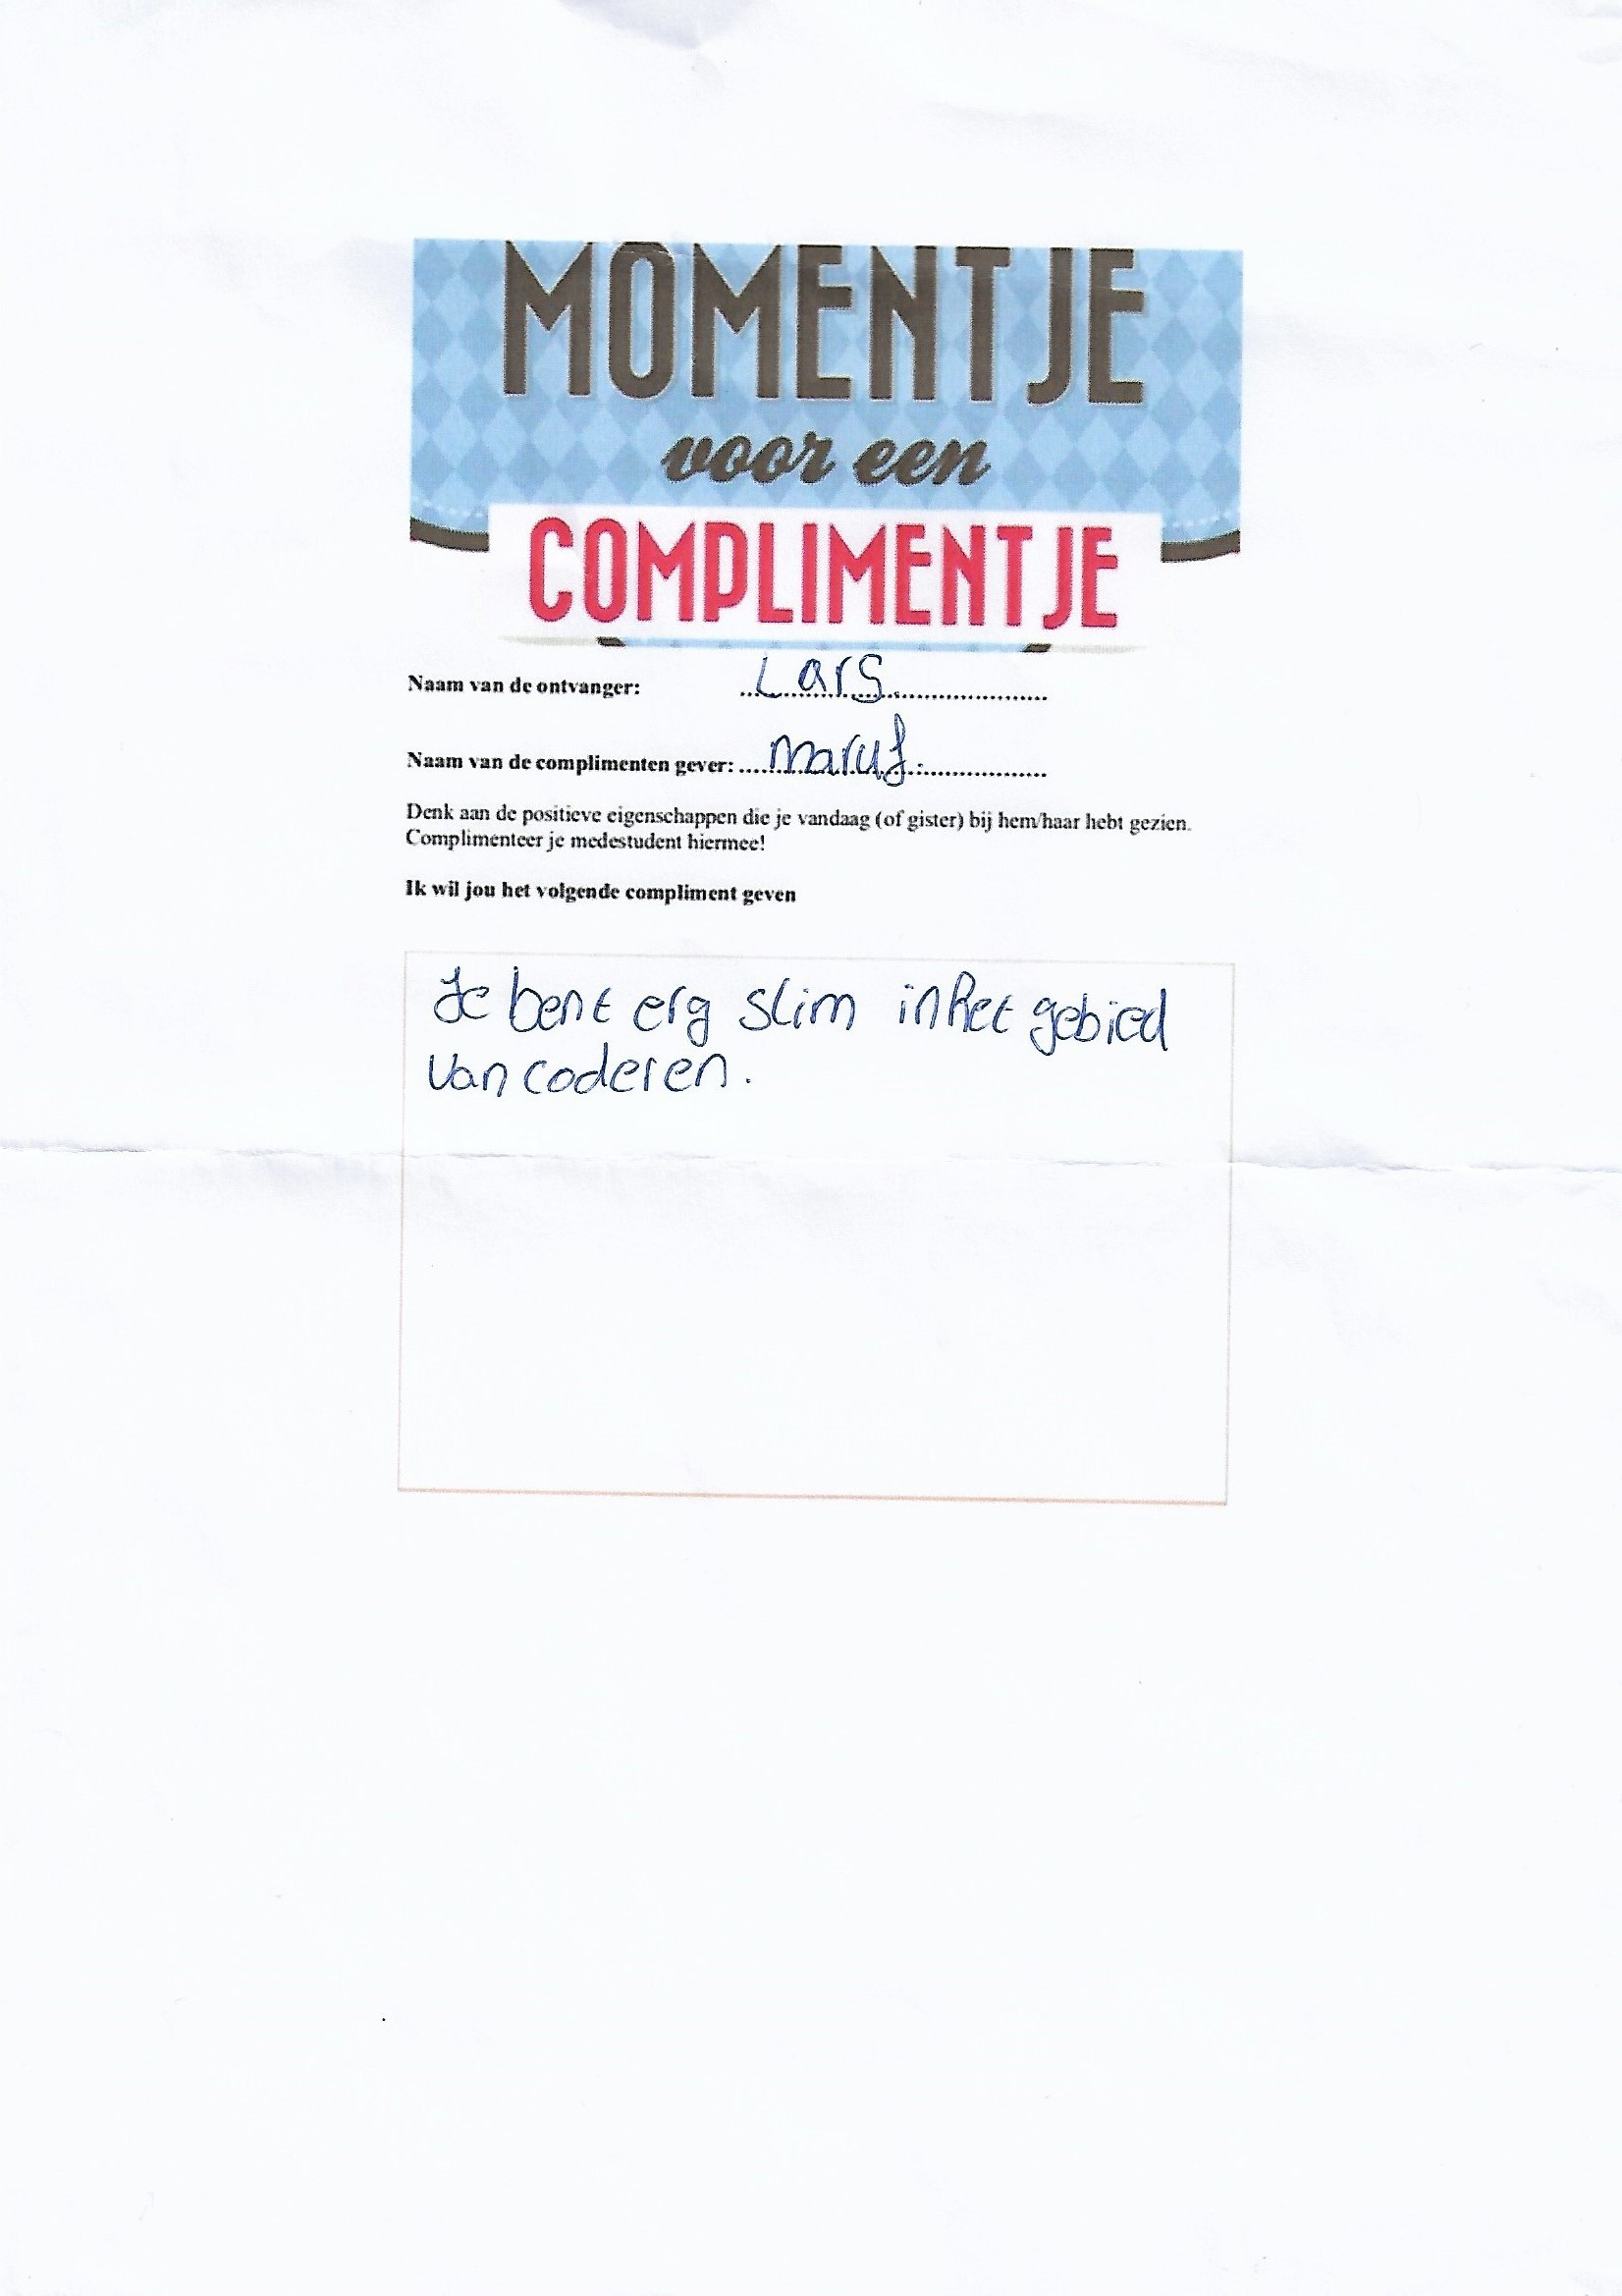 MOMENTJE
voor een
COMPLIMENTJE
Naam van de ontvanger: Lars
Naam van de complimenten gever: Maruf.
Denk aan de positieve eigenschappen die je vandaag (of gister) bij hem/haar hebt gezien.
Complimenteer je medestudent hiermee!
Ik wil jou het volgende compliment geven
Je bent erg slim in het gebied
van coderen.